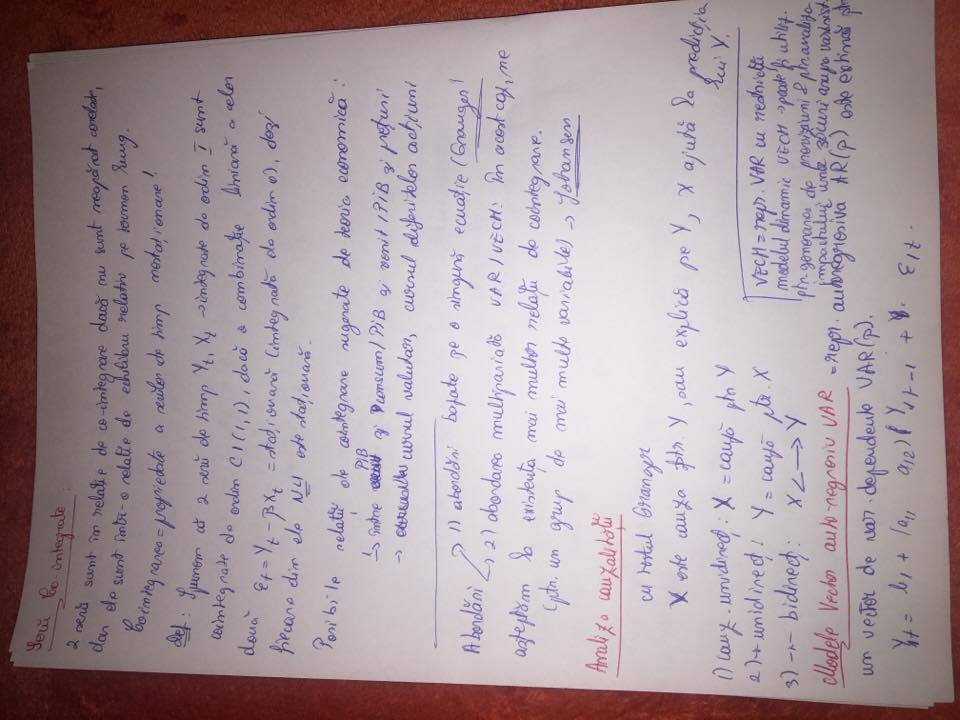 Serii Co-integrate:
2 serii sunt în relație de co-integrare dacă nu sunt neapărat corelate,
dar se sunt într-o relație de echilibru relativ pe termen lung.
Cointegrarea = proprietate a seriilor de timp nestaționare!
Def: Spunem că 2 serii de timp Yt, Xt → integrate de ordin I sunt
cointegrate de ordin CI(1,1), dacă o combinație liniară a celor
două εt = Yt - βXt = staționară (integrată de ordin 0), deși
fiecare din ele NU este staționară.
Posibile relații de cointegrare sugerate de teoria economică:
→ între PIB și consum / PIB și venit / PIB și prețuri
→ cursul valutar, cursul diferitelor acțiuni
Abordări → 1) abordări bazate pe o singură ecuație (Granger)
→ 2) abordarea multivariată VAR / VECM: în acest caz, ne
așteptăm la existența mai multor relații de cointegrare.
(ptr. un grup de mai multe variabile) → Johansen
Analiza cauzalității
cu testul Granger
X este cauza ptr Y, sau explică pe Y, X ajută la predicția
lui Y.
1) cauz. unidirecț: X = cauză ptr Y
2) -"- unidirecț: Y = cauză ptr. X
3) -"- bidirecț: X <-> Y
VECM = repr. VAR cu restricții
modelul dinamic VECM poate fi utiliz.
ptr. generarea de previziuni & ptr. analiza
impactului unor șocuri asupra
Modele Vector auto-regresiv VAR = repr. autoregresivă AR(p) este extinsă ptr
un vector de var. dependente VAR(p).
Yt = b1 + (a11 a12)( Yt-1 + ε1t.